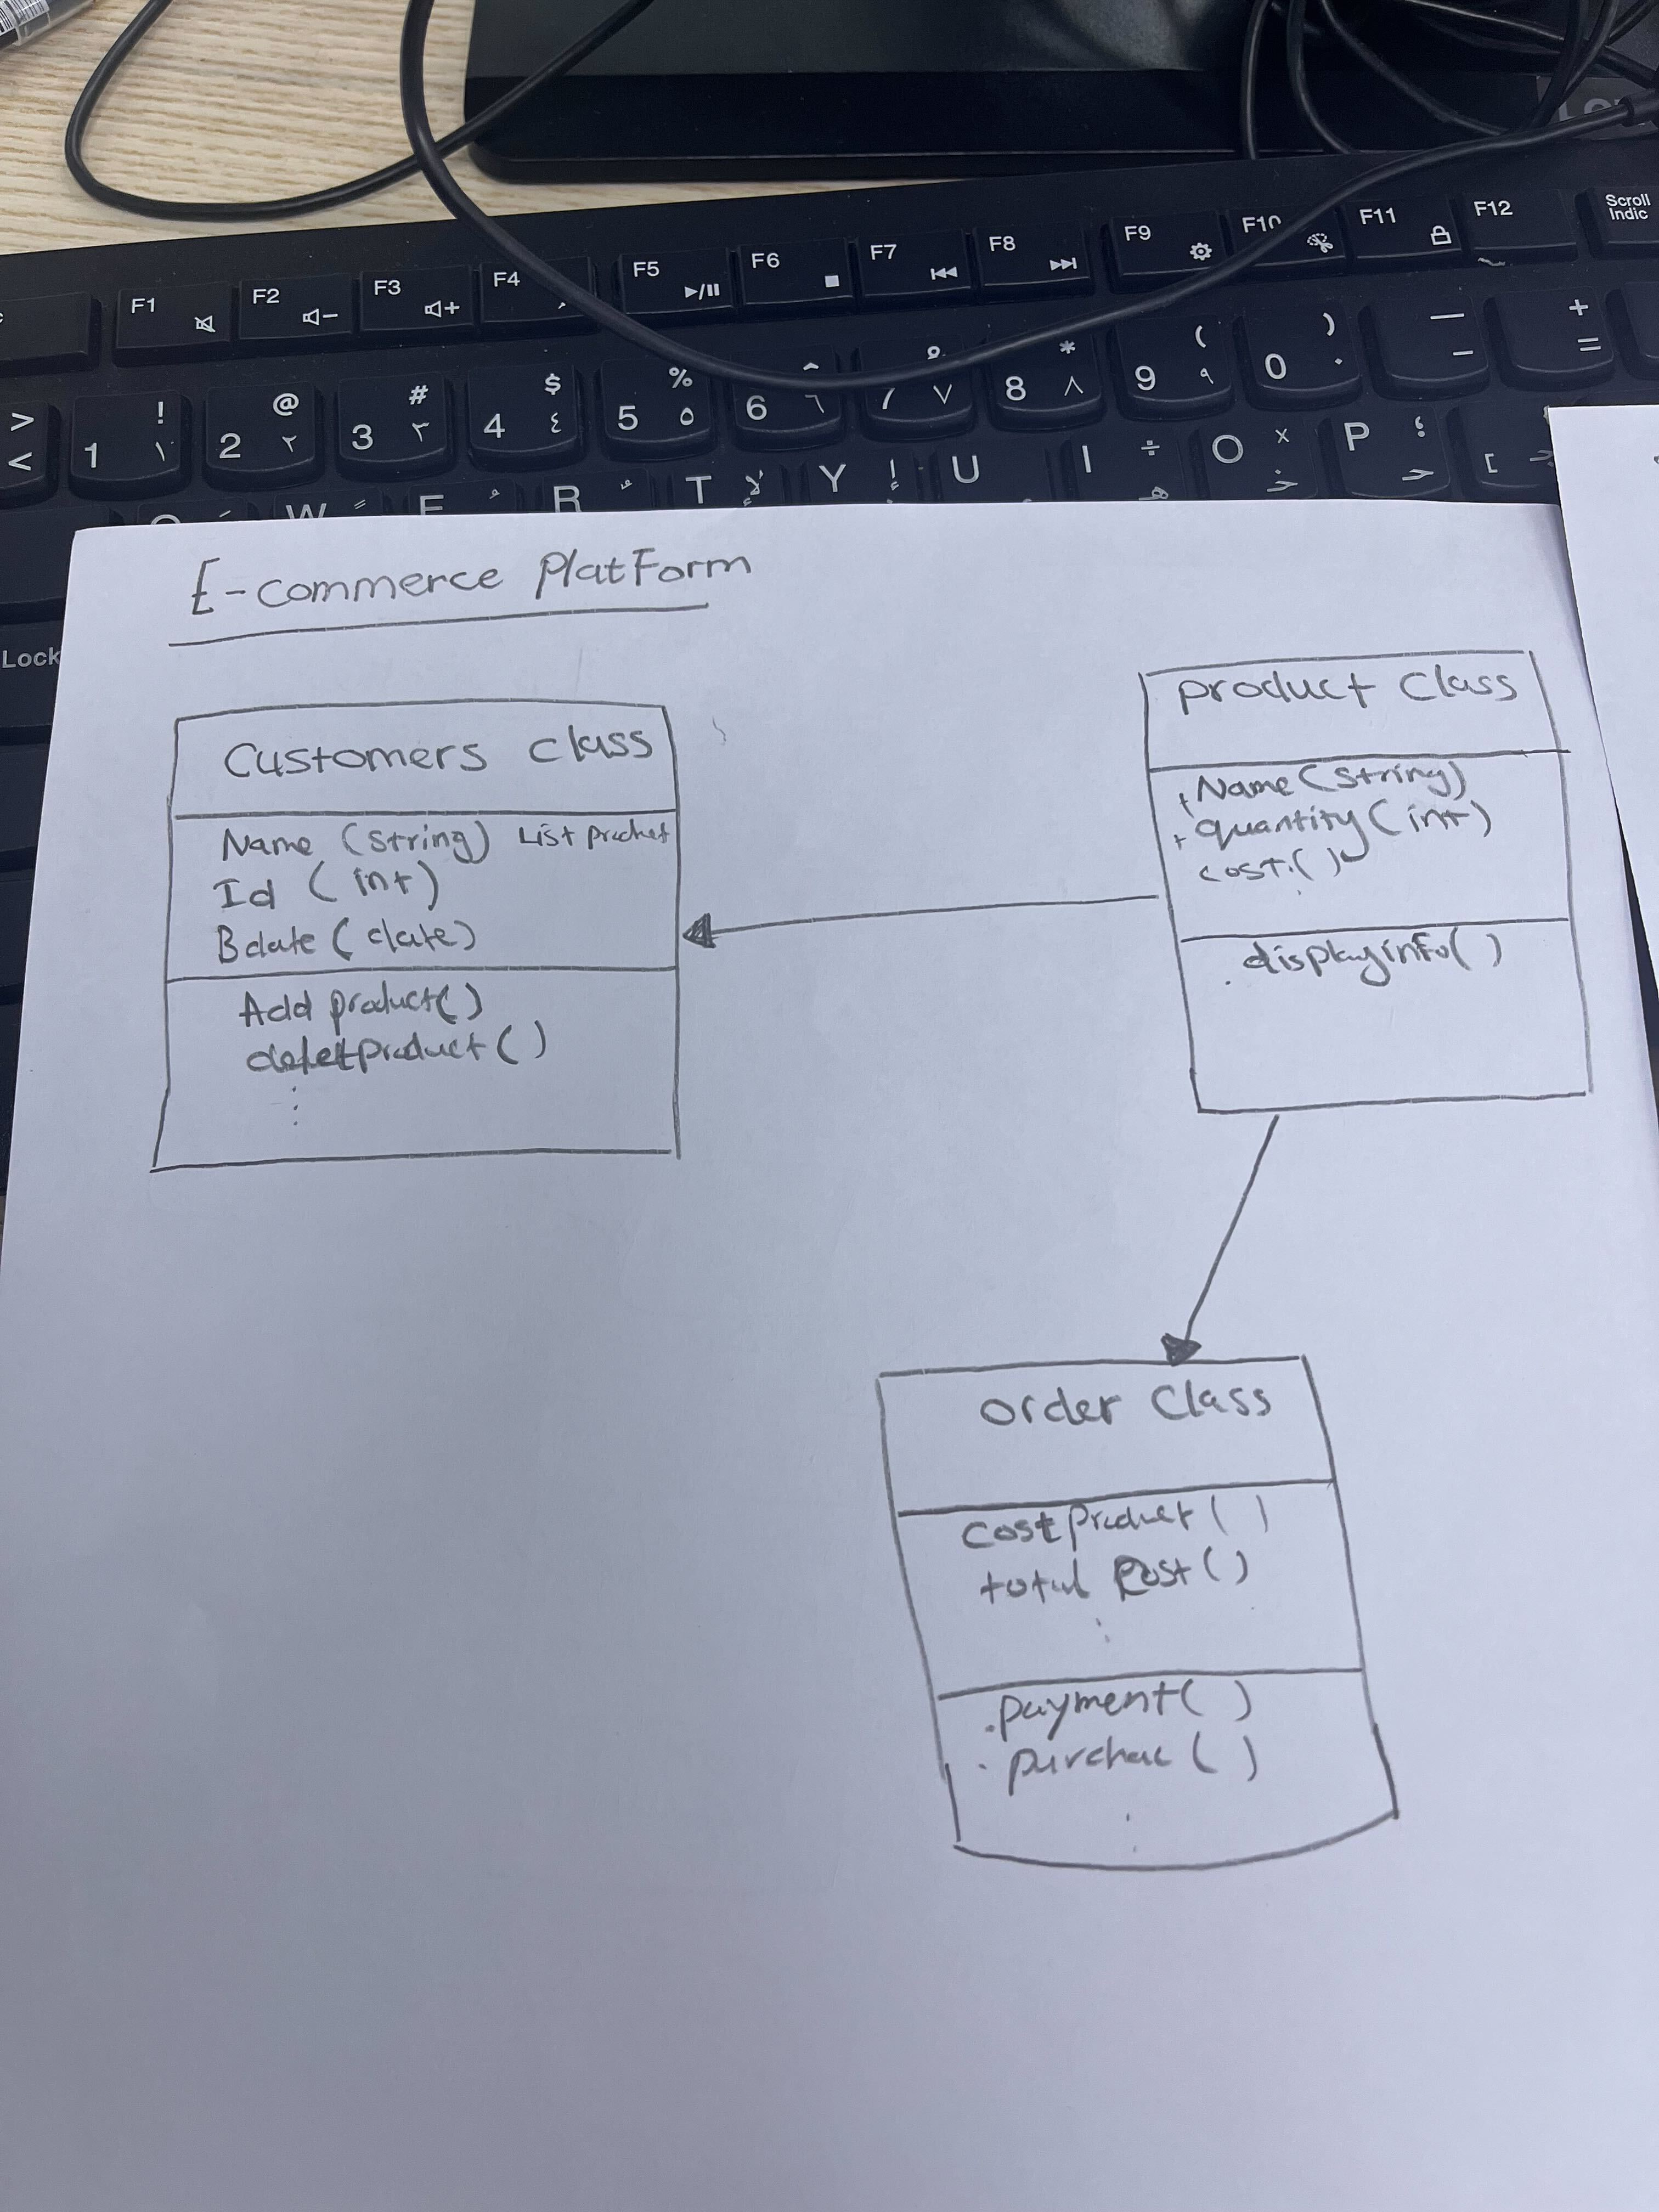 F1 F2 F3 F4 F5 F6 F7 F8 F9 F10 F11 F12 Scroll
Indic
> ! @ # $ % ^ * ( ) — +
< 1 ١ 2 ٢ 3 ٣ 4 ٤ 5 ٥ 6 ٦ 7 ٧ 8 ٨ 9 ٩ 0 − =
W E R T Y U I ÷ O × P ؛ [
Lock
E-commerce PlatForm
Customers class
Name (string) List product
Id (int)
Bdate (date)
Add product()
deletproduct()
product Class
+ Name (string)
+ quantity (int)
cost ()
. displayinfo()
order Class
cost product ()
total cost ()
. payment()
.